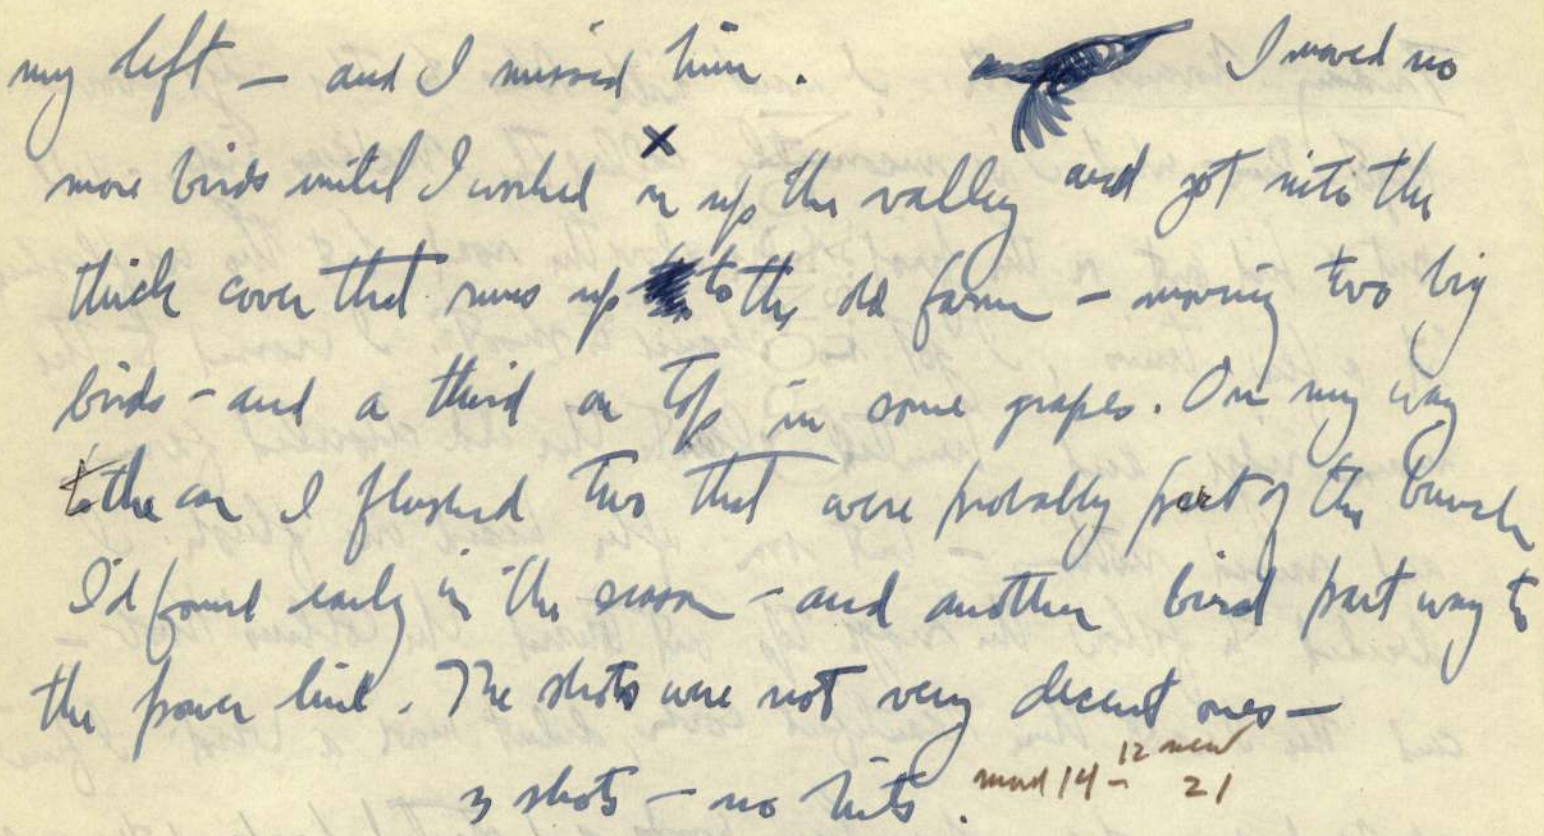 my left — and I missed him. I moved no
x
more birds until I worked on up the valley and got into the
thick cover that runs up to the old farm — moving two big
birds - and a third on top in some grapes. On my way
to the car I flushed two that were probably part of the bunch
I'd found early in the season - and another bird part way to
the power line. The shots were not very decent ones —
3 shots — no hits. 14 - 12 new
21